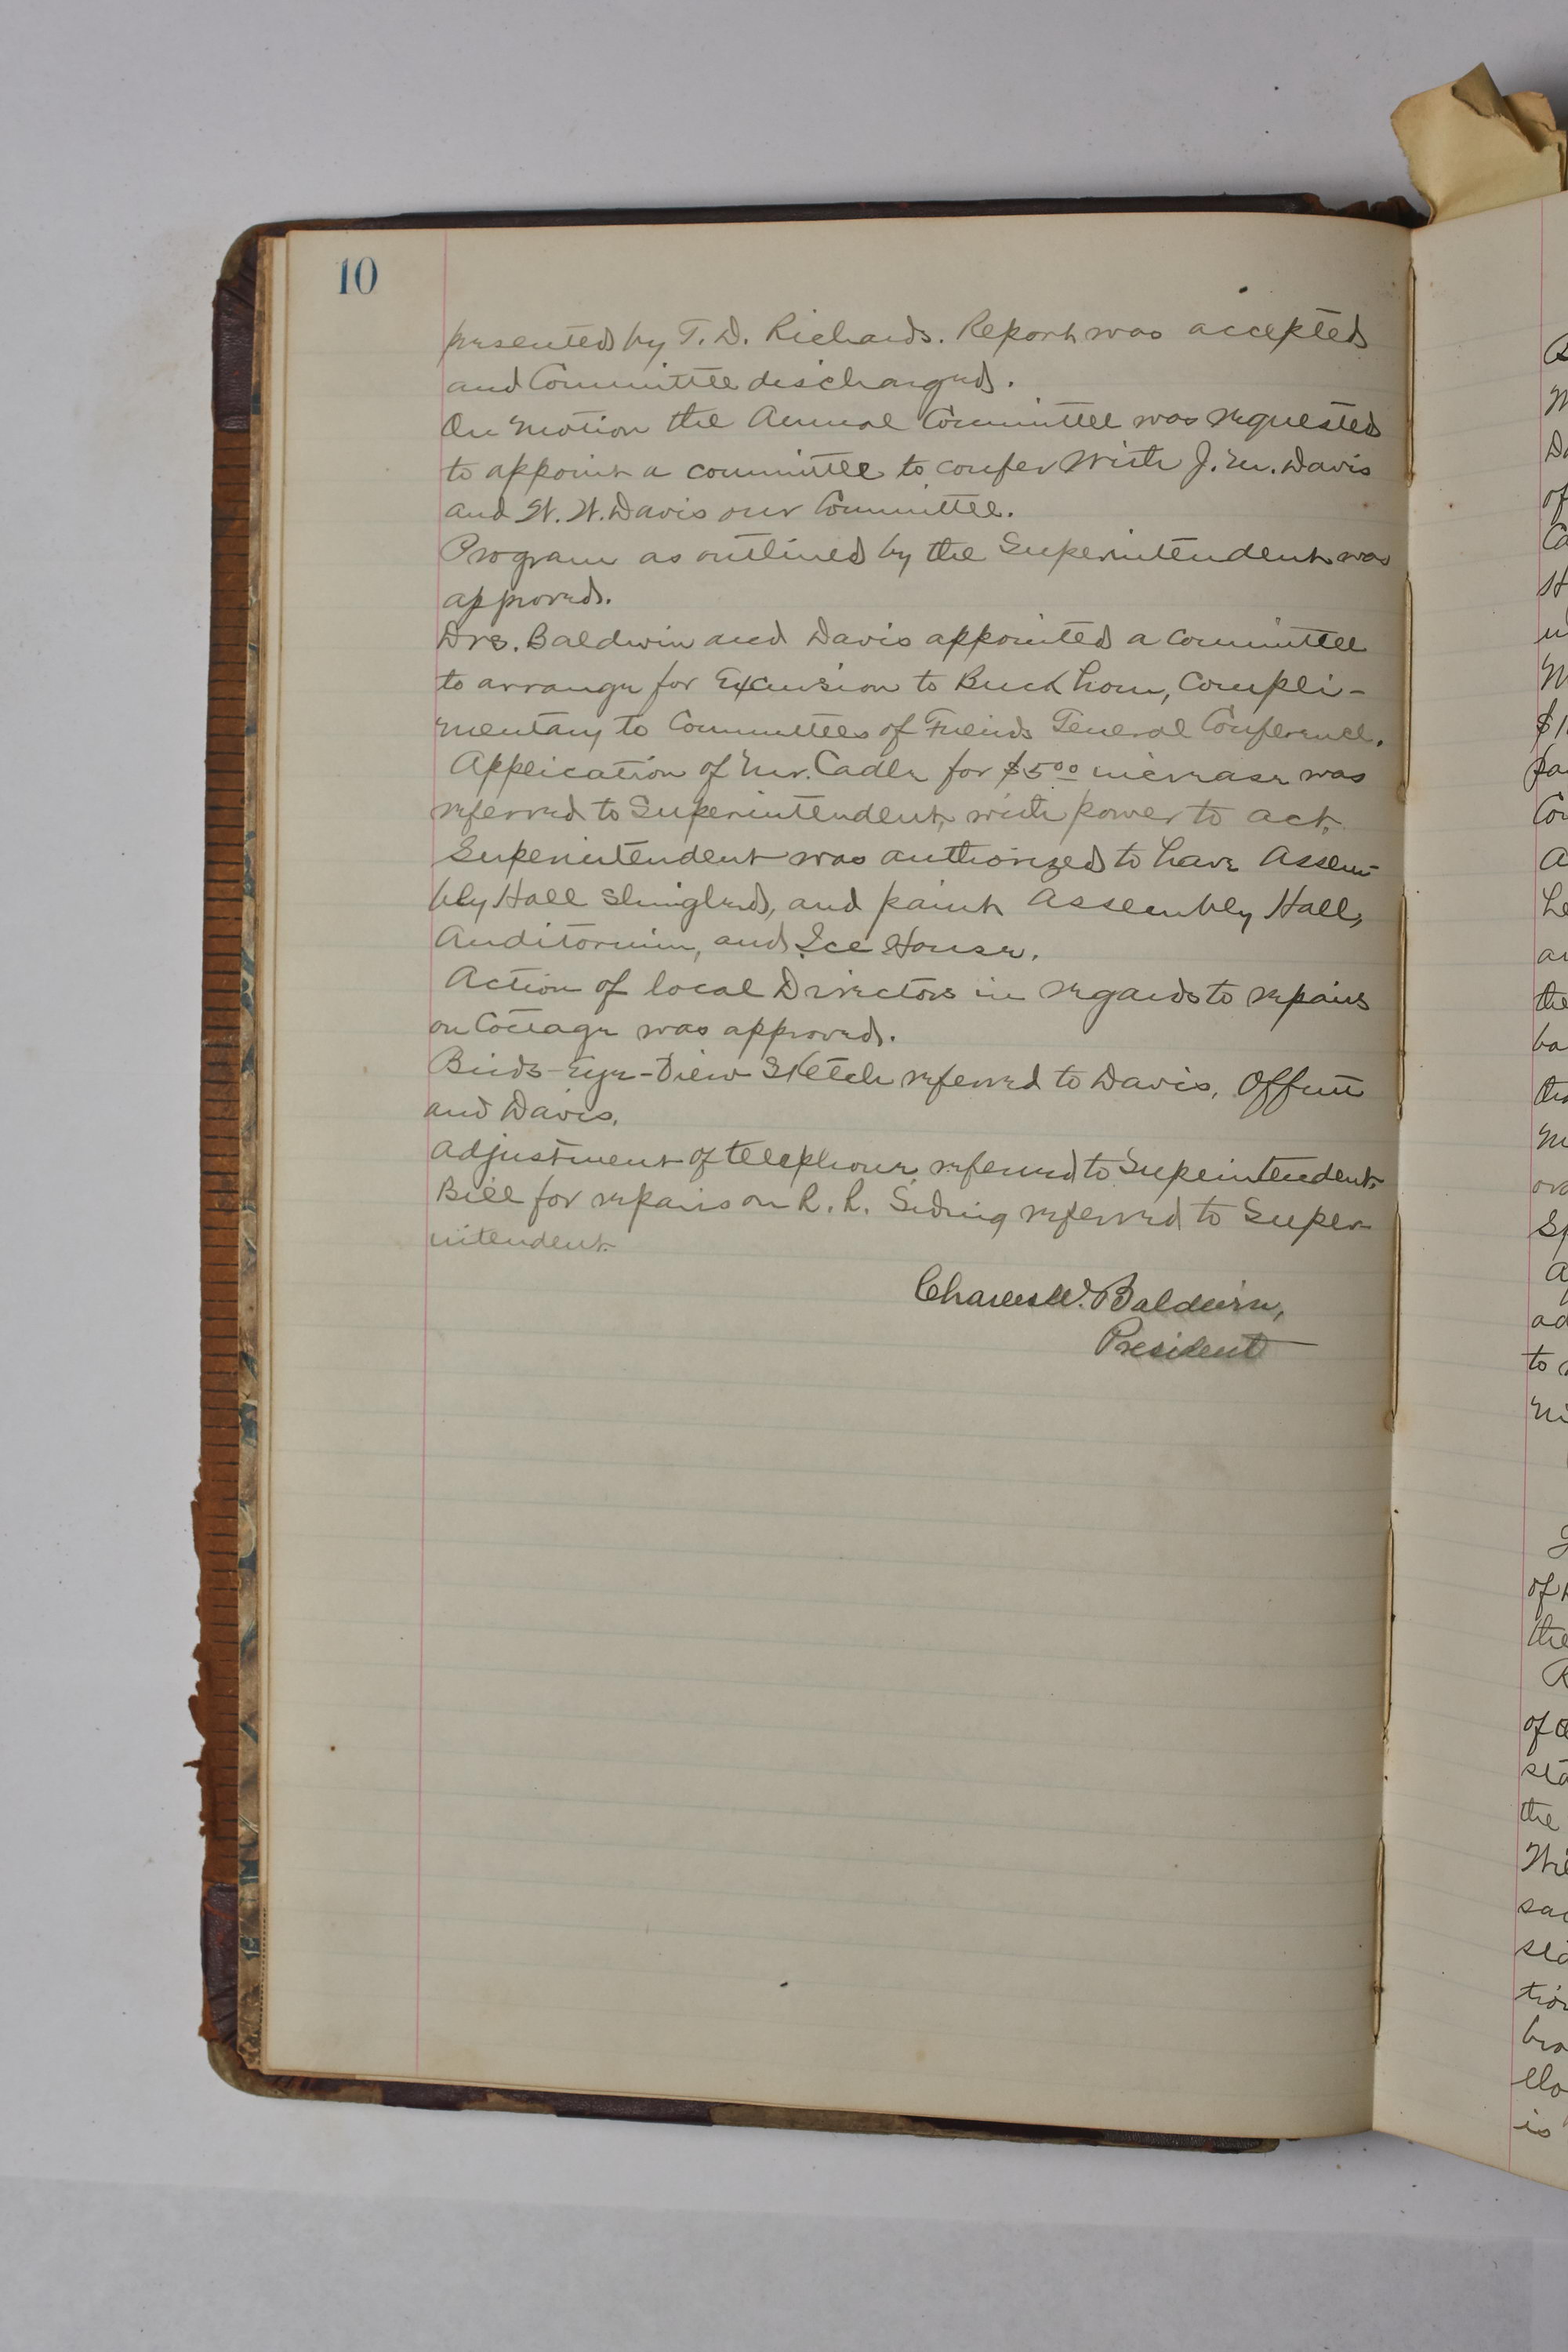 10
presented by T. D. Richards. Report was accepted
and Committee discharged.
On motion the Annual Committee was requested
to appoint a committee to confer with J. M. Davis
and H. W. Davis our Committee.
Program as outlined by the Superintendent was
approved.
Drs. Baldwin and Davis appointed a Committee
to arrange for Excursion to Buckhorn, Compli-
mentary to Committees of Friends General Conference.
Application of Mr. Cadle for $5.00 increase was
referred to Superintendent, with power to act.
Superintendent was authorized to have Assem-
bly Hall shingled, and paint Assembly Hall,
Auditorium, and Ice House.
Action of local Directors in regards to repairs
on Cottage was approved.
Birds-Eye-View Sketch referred to Davis, Offutt
and Davis.
Adjustment of telephone referred to Supeintendent.
Bill for repairs on R. R. Siding referred to Super-
intendent.
Charles W. Baldwin,
President